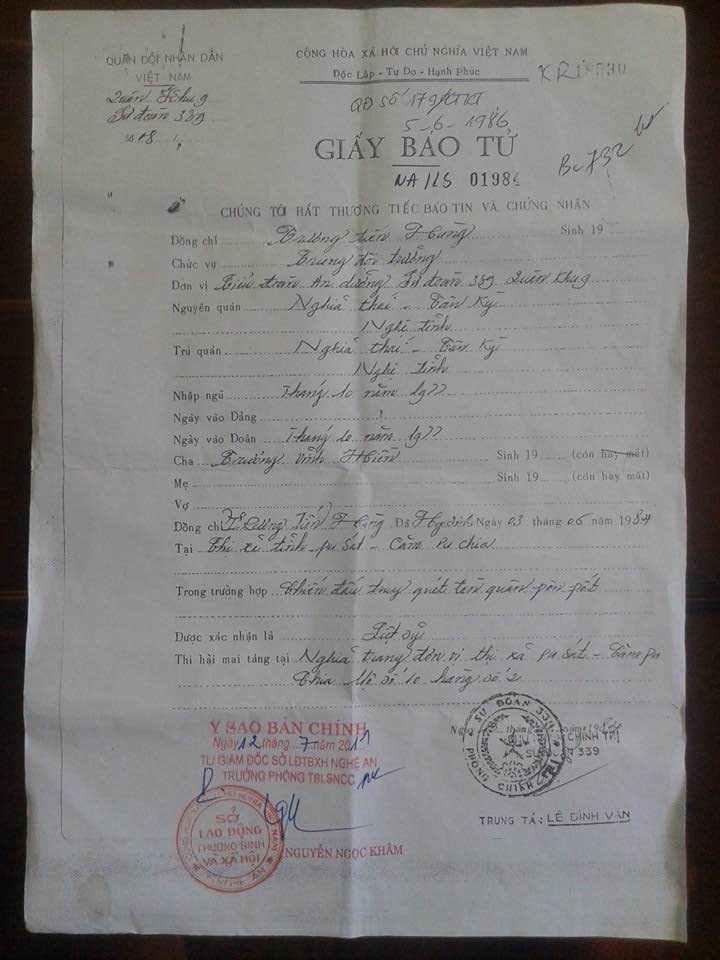 QUÂN ĐỘI NHÂN DÂN
VIỆT NAM
Quân Khu 9
Sư đoàn 339
Số 18
CỘNG HÒA XÃ HỘI CHỦ NGHĨA VIỆT NAM
Độc Lập - Tự Do - Hạnh Phúc
QĐ Số 179
5-6-1986
GIẤY BÁO TỬ
NA/LS 01984
CHÚNG TÔI RẤT THƯƠNG TIẾC BÁO TIN VÀ CHỨNG NHẬN
Đồng chí Trương Tiến Hùng Sinh 19
Chức vụ Trung đội trưởng
Đơn vị Tiểu đoàn An dưỡng Sư đoàn 339 Quân khu 9
Nguyên quán Nghĩa thái - Tân Kỳ
Nghệ tĩnh
Trú quán Nghĩa thái - Tân Kỳ
Nghệ tĩnh
Nhập ngũ Tháng 10 năm 1977
Ngày vào Đảng
Ngày vào Đoàn Tháng 10 năm 1977
Cha Trương vĩnh Hiền Sinh 19 (còn hay mất)
Mẹ Sinh 19 (còn hay mất)
Vợ
Đồng chí Trương Tiến Hùng Đã Hy sinh Ngày 03 tháng 06 năm 1984
Tại Thị xã tỉnh pu Sát - Căm pu chia
Trong trường hợp Chiến đấu truy quét tàn quân pôn pốt
Được xác nhận là Liệt sỹ
Thi hài mai táng tại Nghĩa trang đơn vị thị xã pu Sát - Căm pu
Chia Mộ số 10 hàng số 2
SƯ ĐOÀN 339
PHÒNG CHÍNH TRỊ
TRUNG TÁ: LÊ ĐÌNH VÂN
Y SAO BẢN CHÍNH
Ngày 12 tháng 7 năm 2011
TU GIÁM ĐỐC SỞ LĐTBXH NGHỆ AN
TRƯỞNG PHÒNG TBLSNCC
SỞ
LAO ĐỘNG
THƯƠNG BINH
VÀ XÃ HỘI
NGUYỄN NGỌC KHÂM